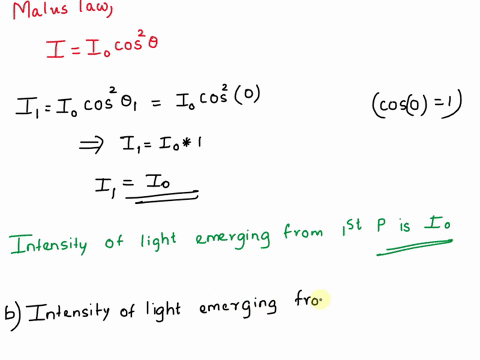 Malus law,
I = I₀ cos²θ
I₁ = I₀ cos²θ₁ = I₀ cos²(0) (cos(0) = 1)
⇒ I₁ = I₀ * 1
I₁ = I₀
Intensity of light emerging from 1st P is I₀
b) Intensity of light emerging fro